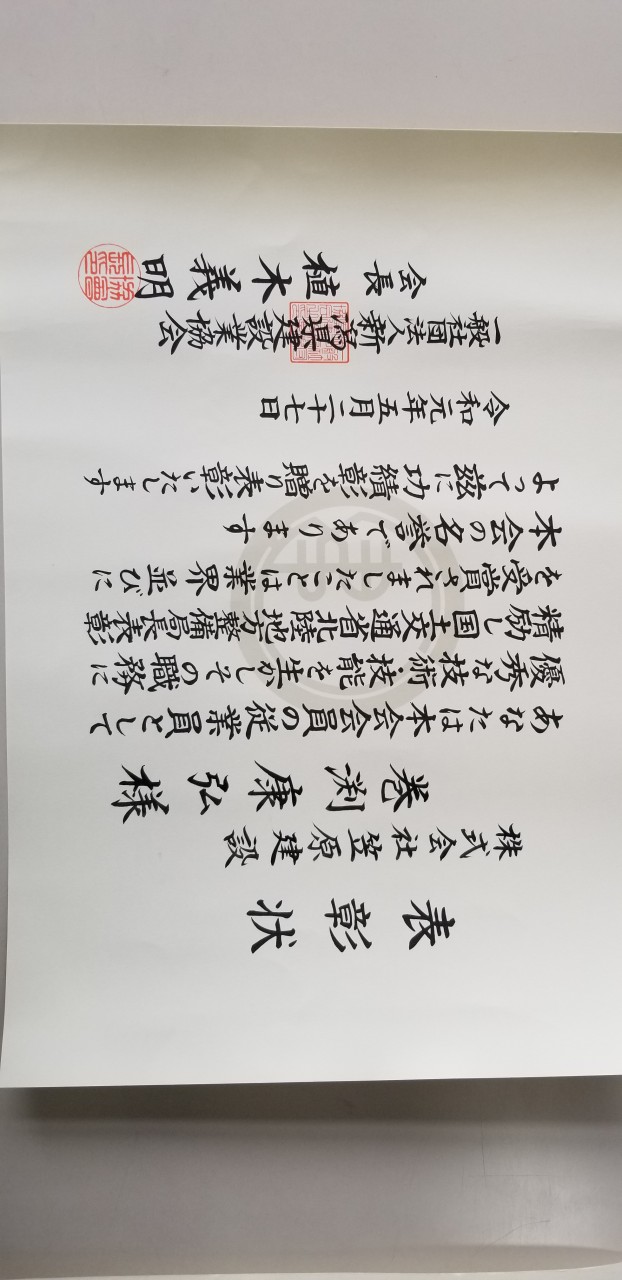 表彰状
株式会社笠原建設
巻渕康弘様
あなたは本会会員の従業員として
優秀な技術・技能を生かしその職務に
精励し国土交通省北陸地方整備局長表彰
を受賞されましたことは業界並びに
本会の名誉であります
よって茲に功績彰を贈り表彰いたします
令和元年五月二十七日
一般社団法人新潟県建設業協会
会長植木義明